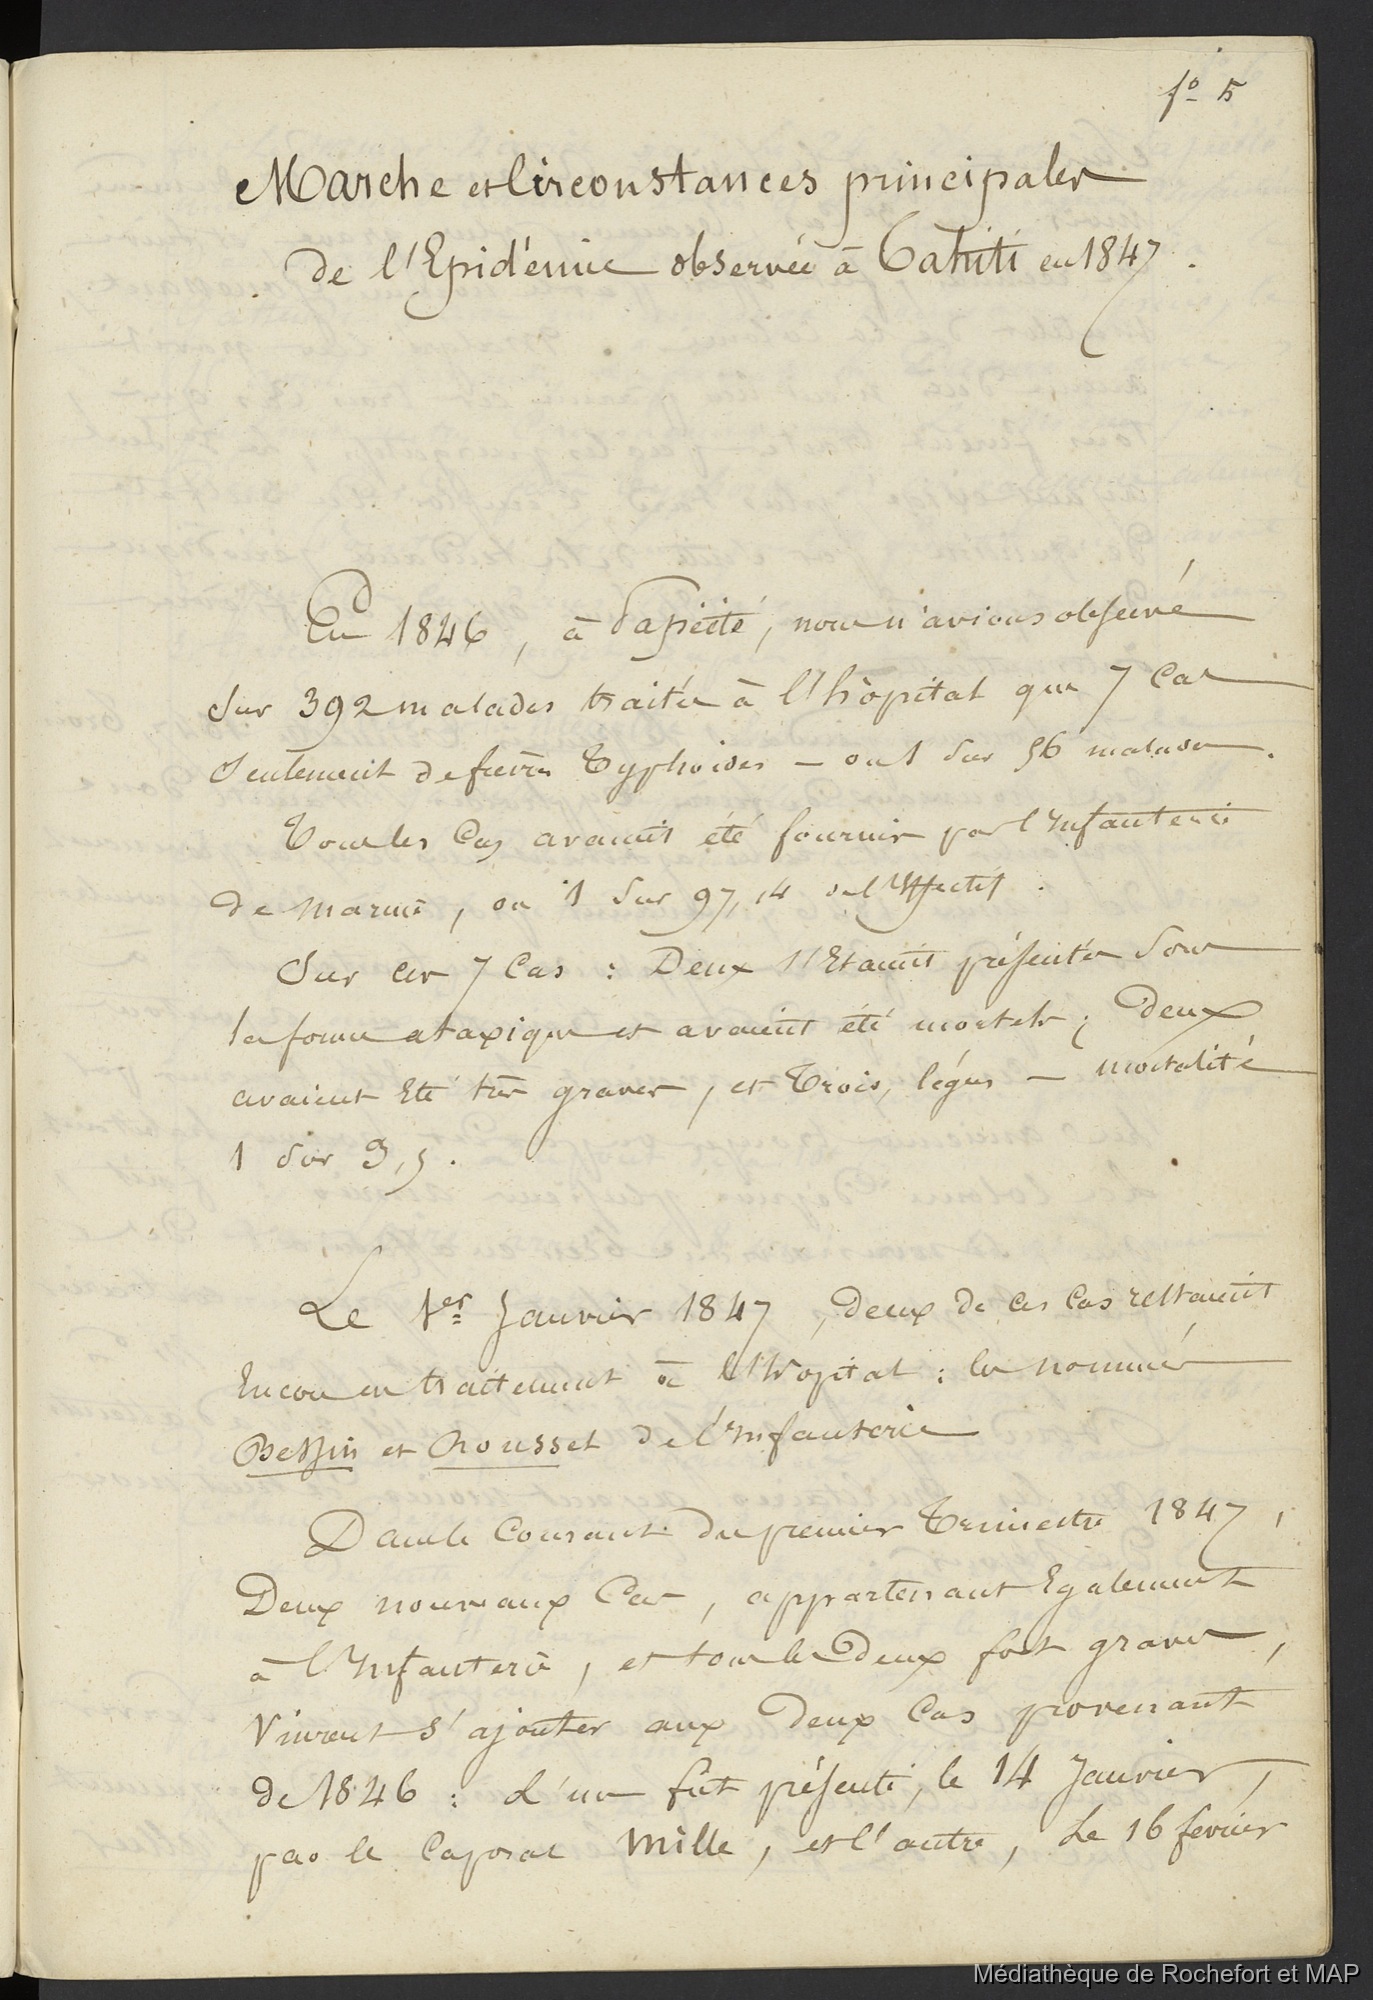 fº 5
Marche et Circonstances principales
de l'Epidémie observée à Tahiti en 1847.
En 1846, à Papéité, nous n'avions observé
sur 392 malades traités à l'hôpital que 7 Cas
seulement de fièvres Typhoïdes — ou 1 sur 56 malades.
Tous les Cas avaient été fournis par l'Infanterie
de marine, ou 1 sur 97,14 de l'Effectif.
Sur ces 7 Cas : Deux s'Etaient présentés sous
la forme ataxique et avaient été mortels ; Deux
avaient Eté très graves, et Trois, légers — mortalité
1 sur 3,5.
Le 1er Janvier 1847, deux de ces Cas restaient
Encore en traitement à l'hôpital : les nommés
Bessin et Rousset de l'Infanterie
Dans le Courant du premier Trimestre 1847,
Deux nouveaux Cas, appartenant Egalement
à l'Infanterie, et tous les Deux fort graves,
Vinrent s'ajouter aux Deux Cas provenant
de 1846 : L'un fut présenté, le 14 Janvier,
par le Caporal Mille, et l'autre, Le 16 février
Médiathèque de Rochefort et MAP